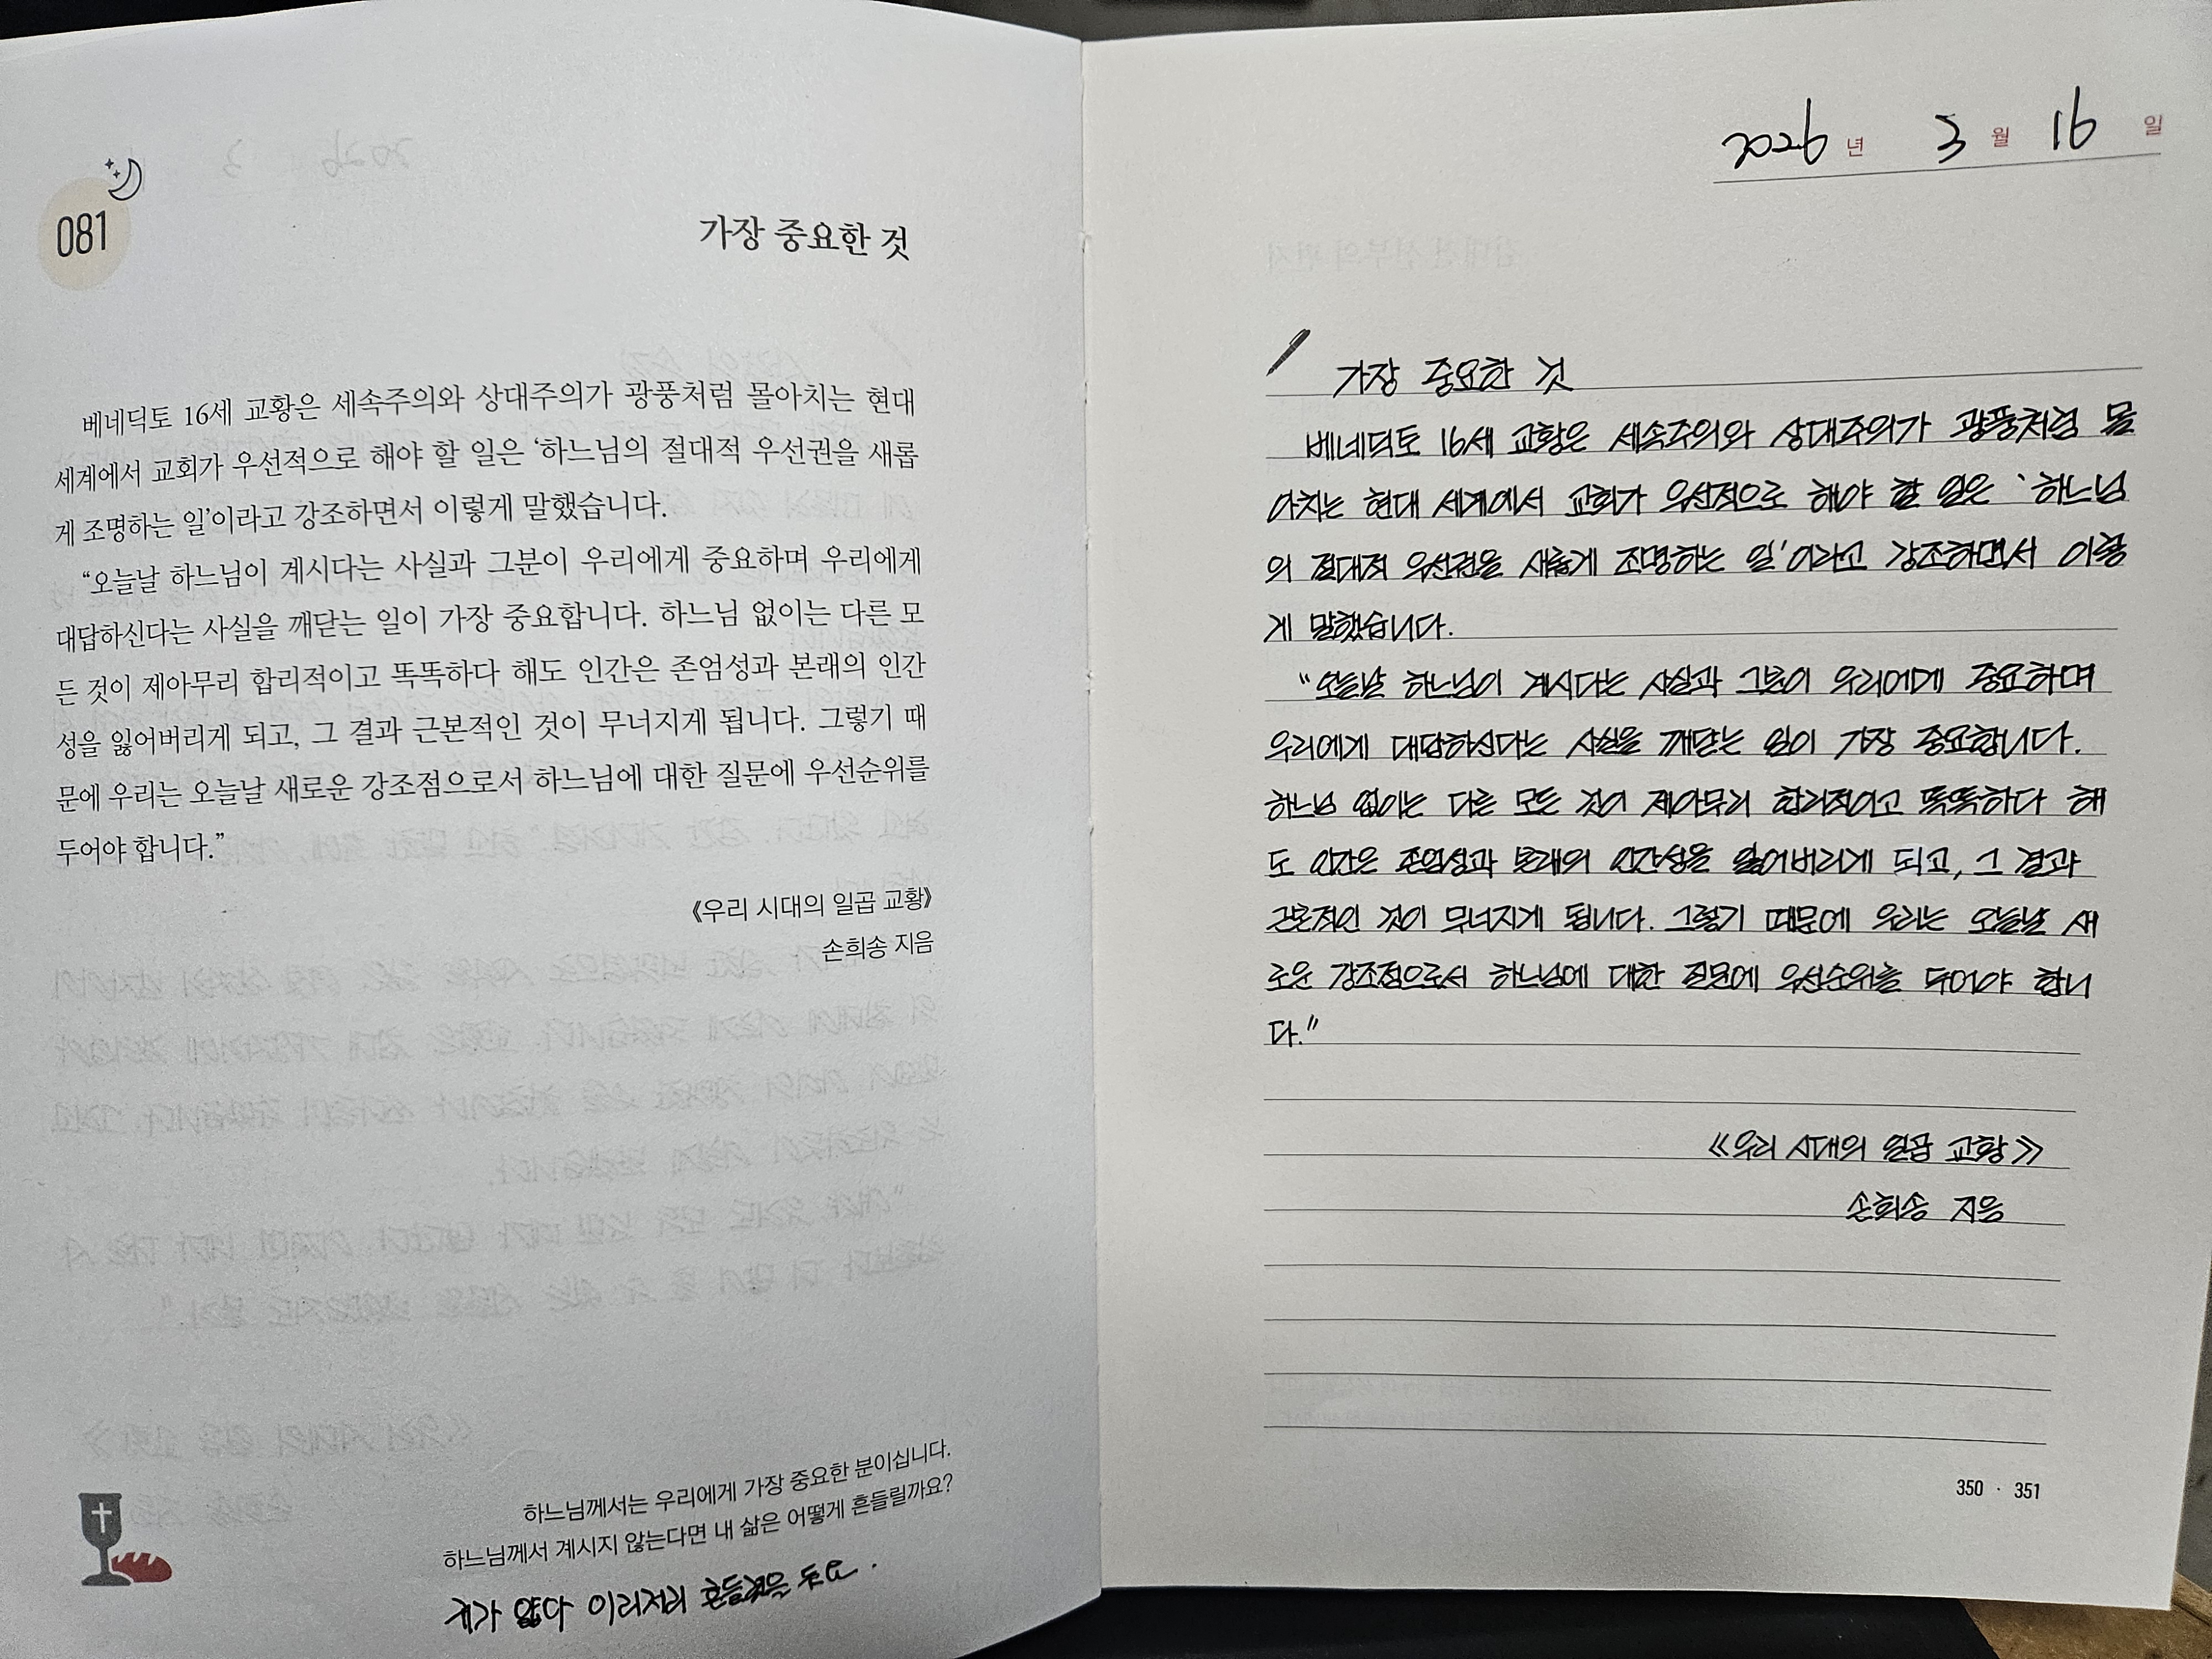 081
가장 중요한 것
베네딕토 16세 교황은 세속주의와 상대주의가 광풍처럼 몰아치는 현대
세계에서 교회가 우선적으로 해야 할 일은 ‘하느님의 절대적 우선권을 새롭
게 조명하는 일’이라고 강조하면서 이렇게 말했습니다.
“오늘날 하느님이 계시다는 사실과 그분이 우리에게 중요하며 우리에게
대답하신다는 사실을 깨닫는 일이 가장 중요합니다. 하느님 없이는 다른 모
든 것이 제아무리 합리적이고 똑똑하다 해도 인간은 존엄성과 본래의 인간
성을 잃어버리게 되고, 그 결과 근본적인 것이 무너지게 됩니다. 그렇기 때
문에 우리는 오늘날 새로운 강조점으로서 하느님에 대한 질문에 우선순위를
두어야 합니다.”
《우리 시대의 일곱 교황》
손희송 지음
하느님께서는 우리에게 가장 중요한 분이십니다.
하느님께서 계시지 않는다면 내 삶은 어떻게 흔들릴까요?
이리저리
2026년 3월 16일
가장 중요한 것
베네딕토 16세 교황은 세속주의와 상대주의가 광풍처럼 몰
아치는 현대 세계에서 교회가 우선적으로 해야 할 일은 ‘하느님
의 절대적 우선권을 새롭게 조명하는 일’이라고 강조하면서 이렇
게 말했습니다.
“오늘날 하느님이 계시다는 사실과 그분이 우리에게 중요하며
우리에게 대답하신다는 사실을 깨닫는 일이 가장 중요합니다.
하느님 없이는 다른 모든 것이 제아무리 합리적이고 똑똑하다 해
도 인간은 존엄성과 본래의 인간성을 잃어버리게 되고, 그 결과
근본적인 것이 무너지게 됩니다. 그렇기 때문에 우리는 오늘날 새
로운 강조점으로서 하느님에 대한 질문에 우선순위를 두어야 합니
다.”
《우리 시대의 일곱 교황》
손희송 지음
350 · 351